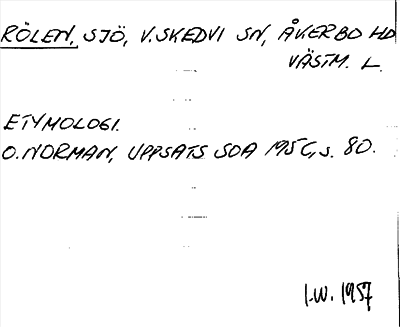 RÖLEN, SJÖ, V. SKEDVI SN, ÅKERBO HD
VÄSTM. L.
ETYMOLOGI.
O. NORMAN, UPPSATS SOA 1956, s. 80.
I.W. 1957